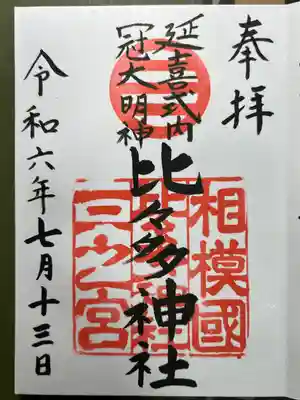 奉拝
延喜式内
冠大明神
比々多神社
相模國
三之宮
令和六年七月十三日